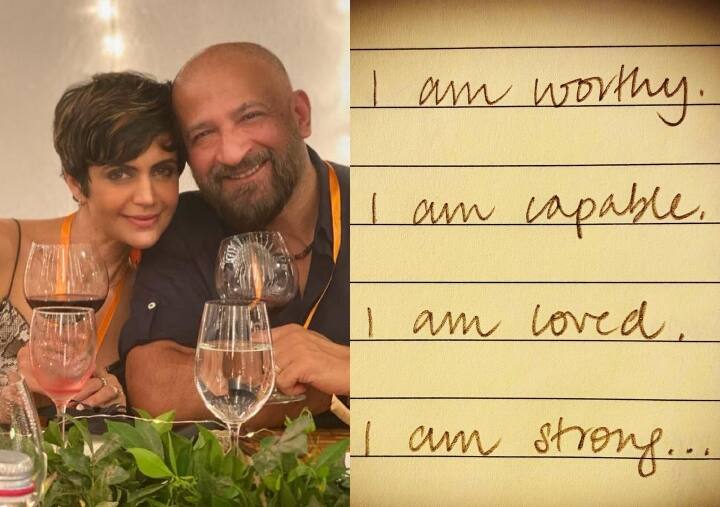 I am worthy.
I am capable.
I am loved.
I am strong...